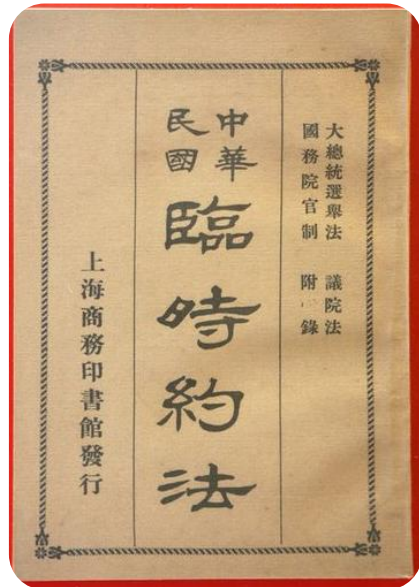 大總統選舉法 議院法
國務院官制 附錄
中華
民國
臨時約法
上海商務印書館發行